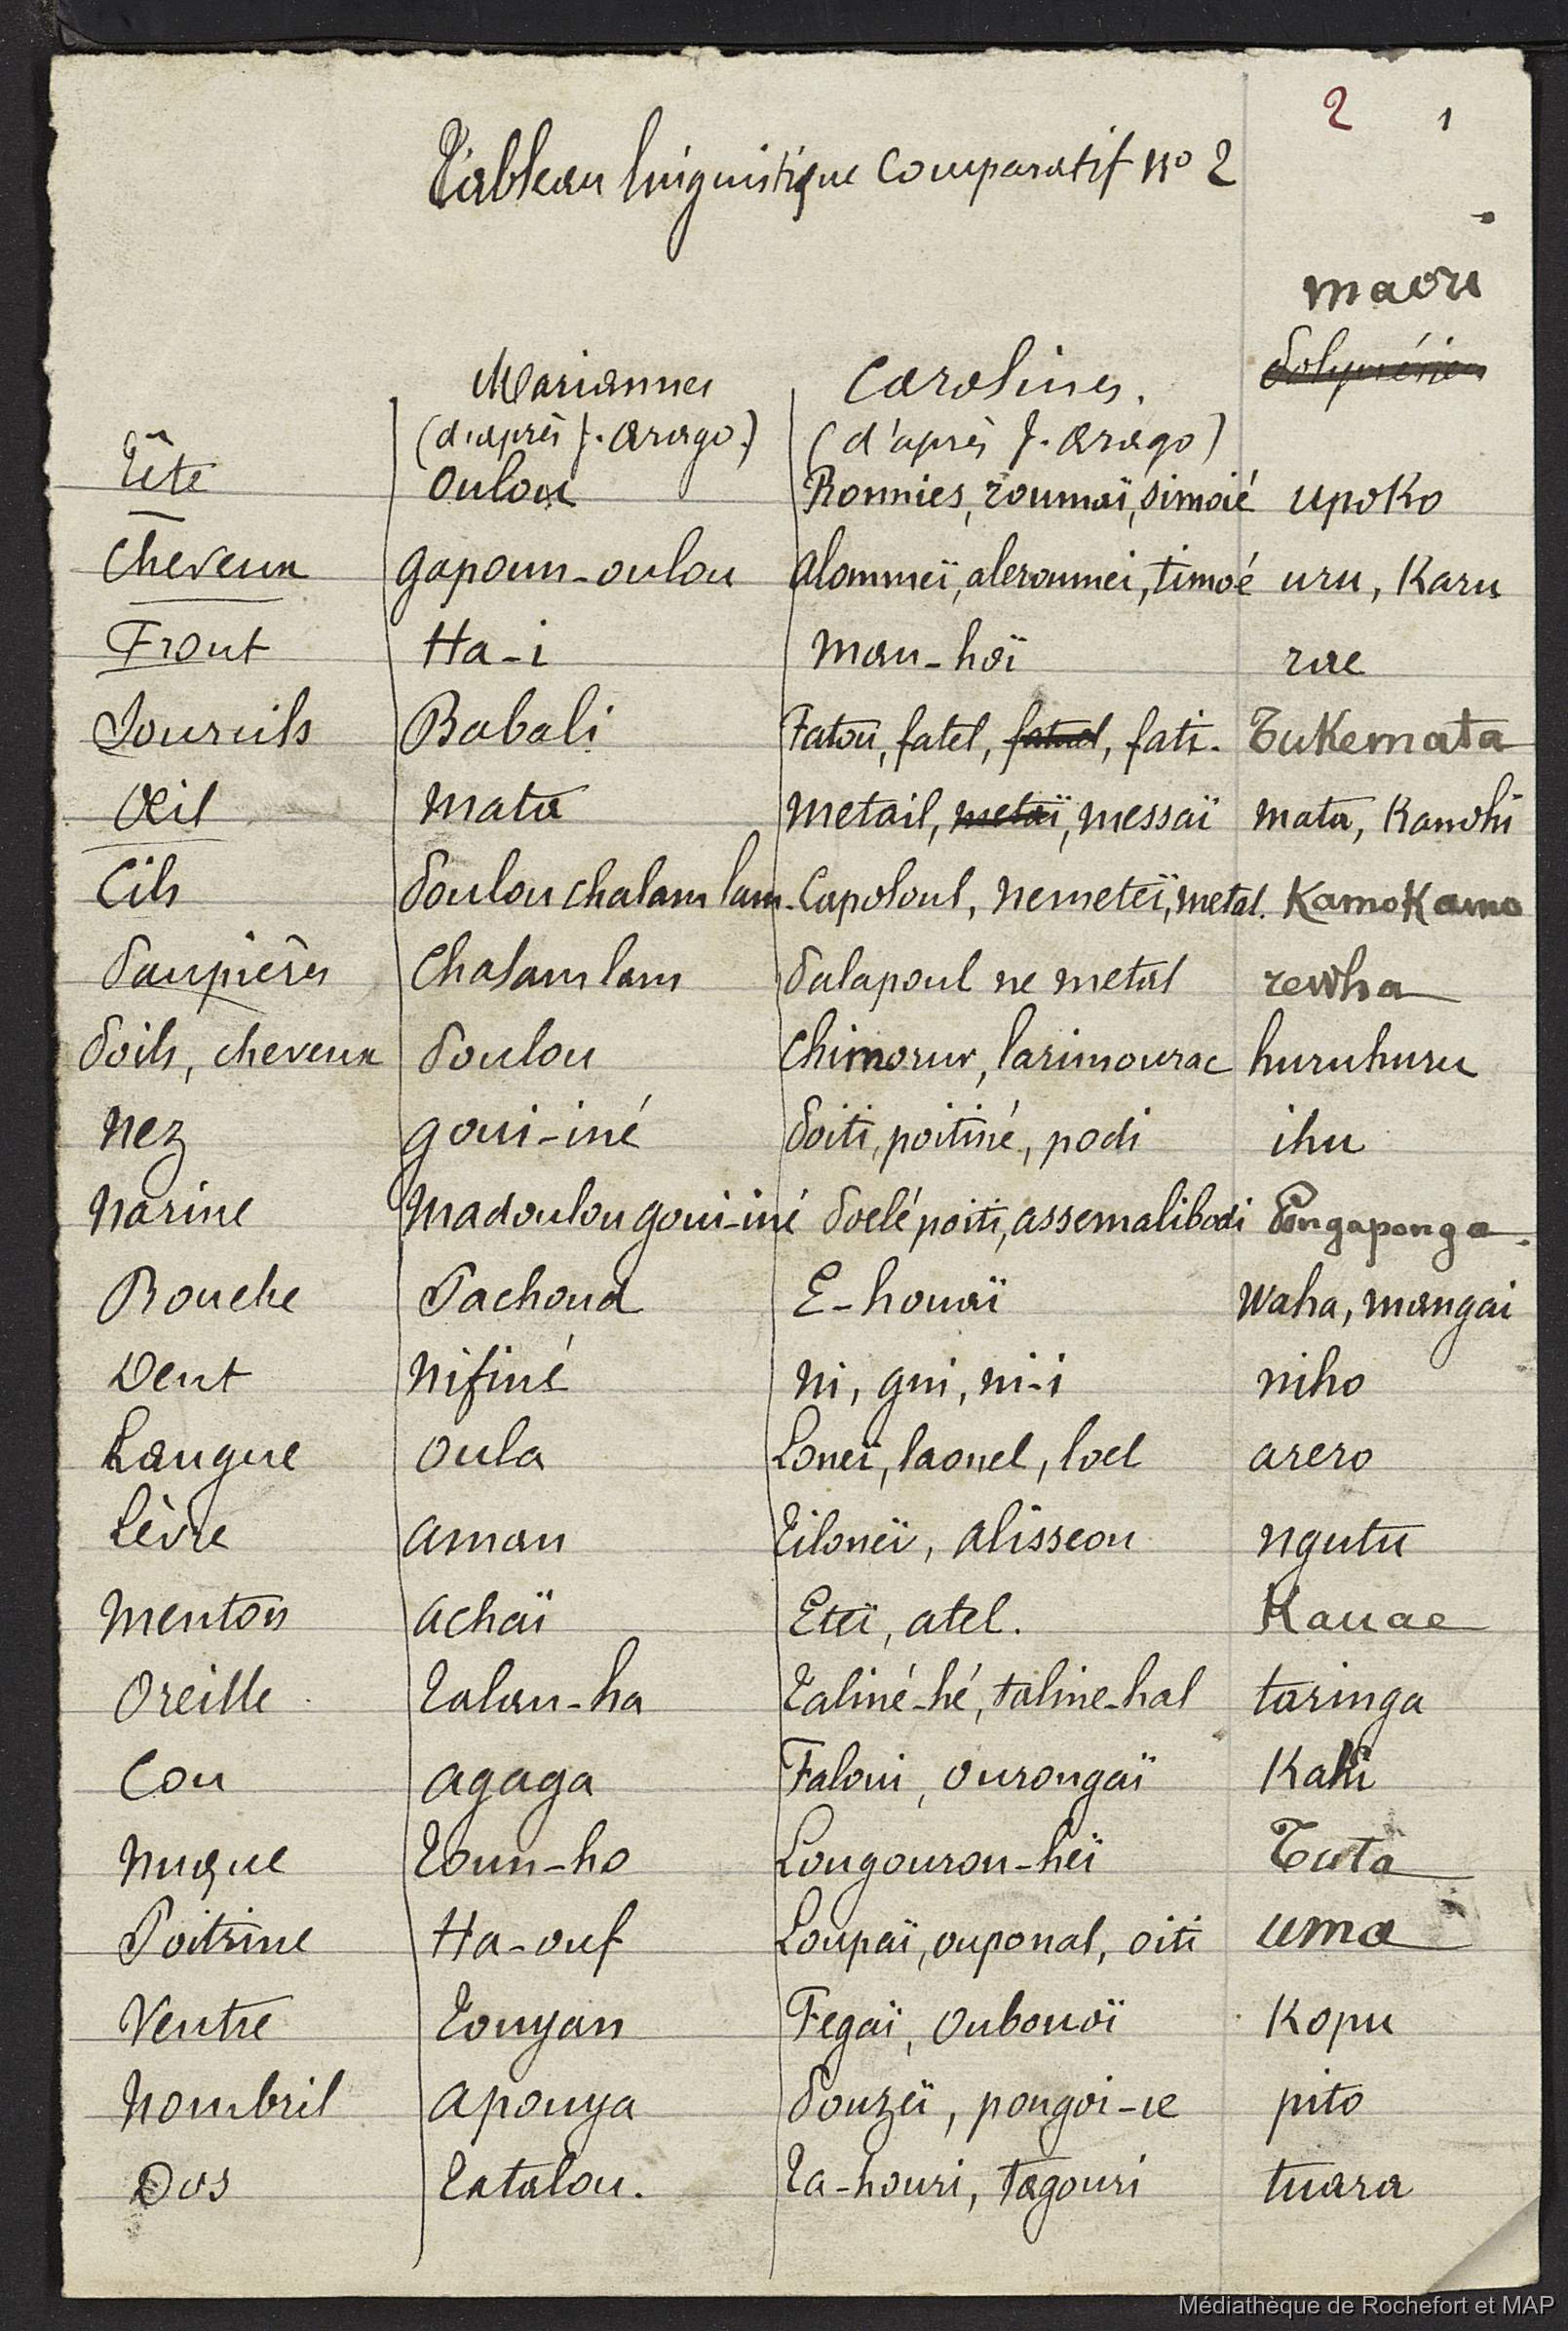 2 1
Tableau linguistique Comparatif No 2
maori
Mariannes Carolines. Polynésien
(d'après J. Arago.) (d'après J. Arago)
Tête Oulou Ronnies, roumaï, simoié upoko
Cheveux Gapoun-oulou Alommeï, aleroumei, timoé uru, Karu
Front Ha-i Man-hoï rae
Sourcils Babali Fatoü, fatel, fatuel, fati. Tukemata
Œil Mata Metail, metaï, messaï mata, Kanohi
Cils Poulou chalam lam. Capoloul, nemeteï, metal. KamoKamo
Paupières Chalam lam Palapoul ne metal rewha
Poils, cheveux Poulou Chimorur, larimourac huruhuru
Nez Goui-iné Poiti, poitiné, podi ihu
Narine Madoulou goui-iné Poelé poiti, assemalibodi Pongaponga.
Bouche Pachoud E-houaï Waha, mangai
Dent Nifiné Ni, gni, ni-i niho
Langue Oula Loueï, laouel, loel arero
Lèvre Aman Tiloueï, alisseou ngutu
Menton Achaï Eteï, atel. Kauae
Oreille Talan-ha Taliné-hé, taline-hal taringa
Cou Agaga Faloui, ourongaï Kaki
Nuque Toun-ho Lougourou-heï Tuta
Poitrine Ha-ouf Loupaï, ouponal, oiti uma
Ventre Touyan Fegaï, oubouoï Kopu
Nombril Apouya Pouzeï, pougoi-ie pito
Dos Tatalou. Ta-houri, tagouri tuara
Médiathèque de Rochefort et MAP